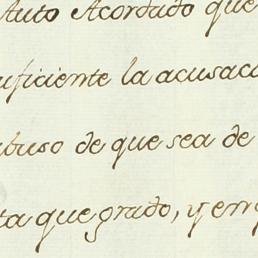 Auto Acordado que
uficiente la acusac
abuso de que sea de
ta que grado, y en